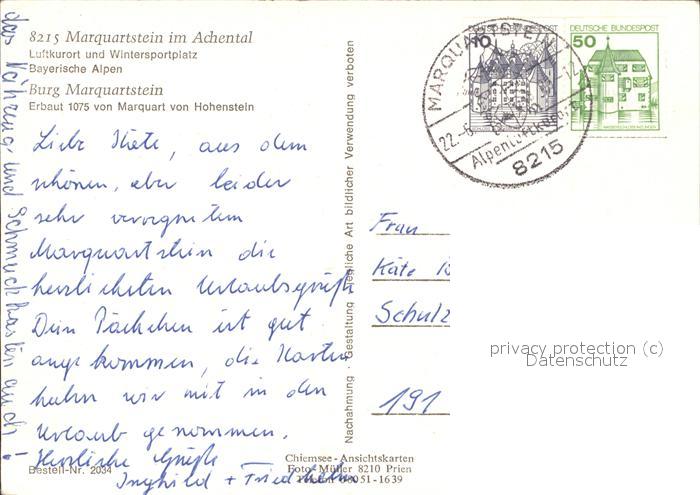 8215 Marquartstein im Achental
Luftkurort und Wintersportplatz
Bayerische Alpen
Burg Marquartstein
Erbaut 1075 von Marquart von Hohenstein
Liebe Käte, aus dem
schönen, aber leider
sehr verregneten
Marquartstein die
herzlichsten Urlaubsgrüße
Dein Päckchen ist gut
angekommen, die Karten
haben wir mit in den
Urlaub genommen.
Herzliche Grüße
Inghild + Friedhelm
das Nährzeug und Schmuckkasten auch!
Bestell-Nr. 2034
Chiemsee-Ansichtskarten
Foto-Müller 8210 Prien
08051-1639
Nachahmung · Gestaltung jegliche Art bildlicher Verwendung verboten
MARQUARTSTEIN
22.-6.
8215
10
DEUTSCHE BUNDESPOST
50
Frau
Käte
Schulz
191
privacy protection (c)
Datenschutz